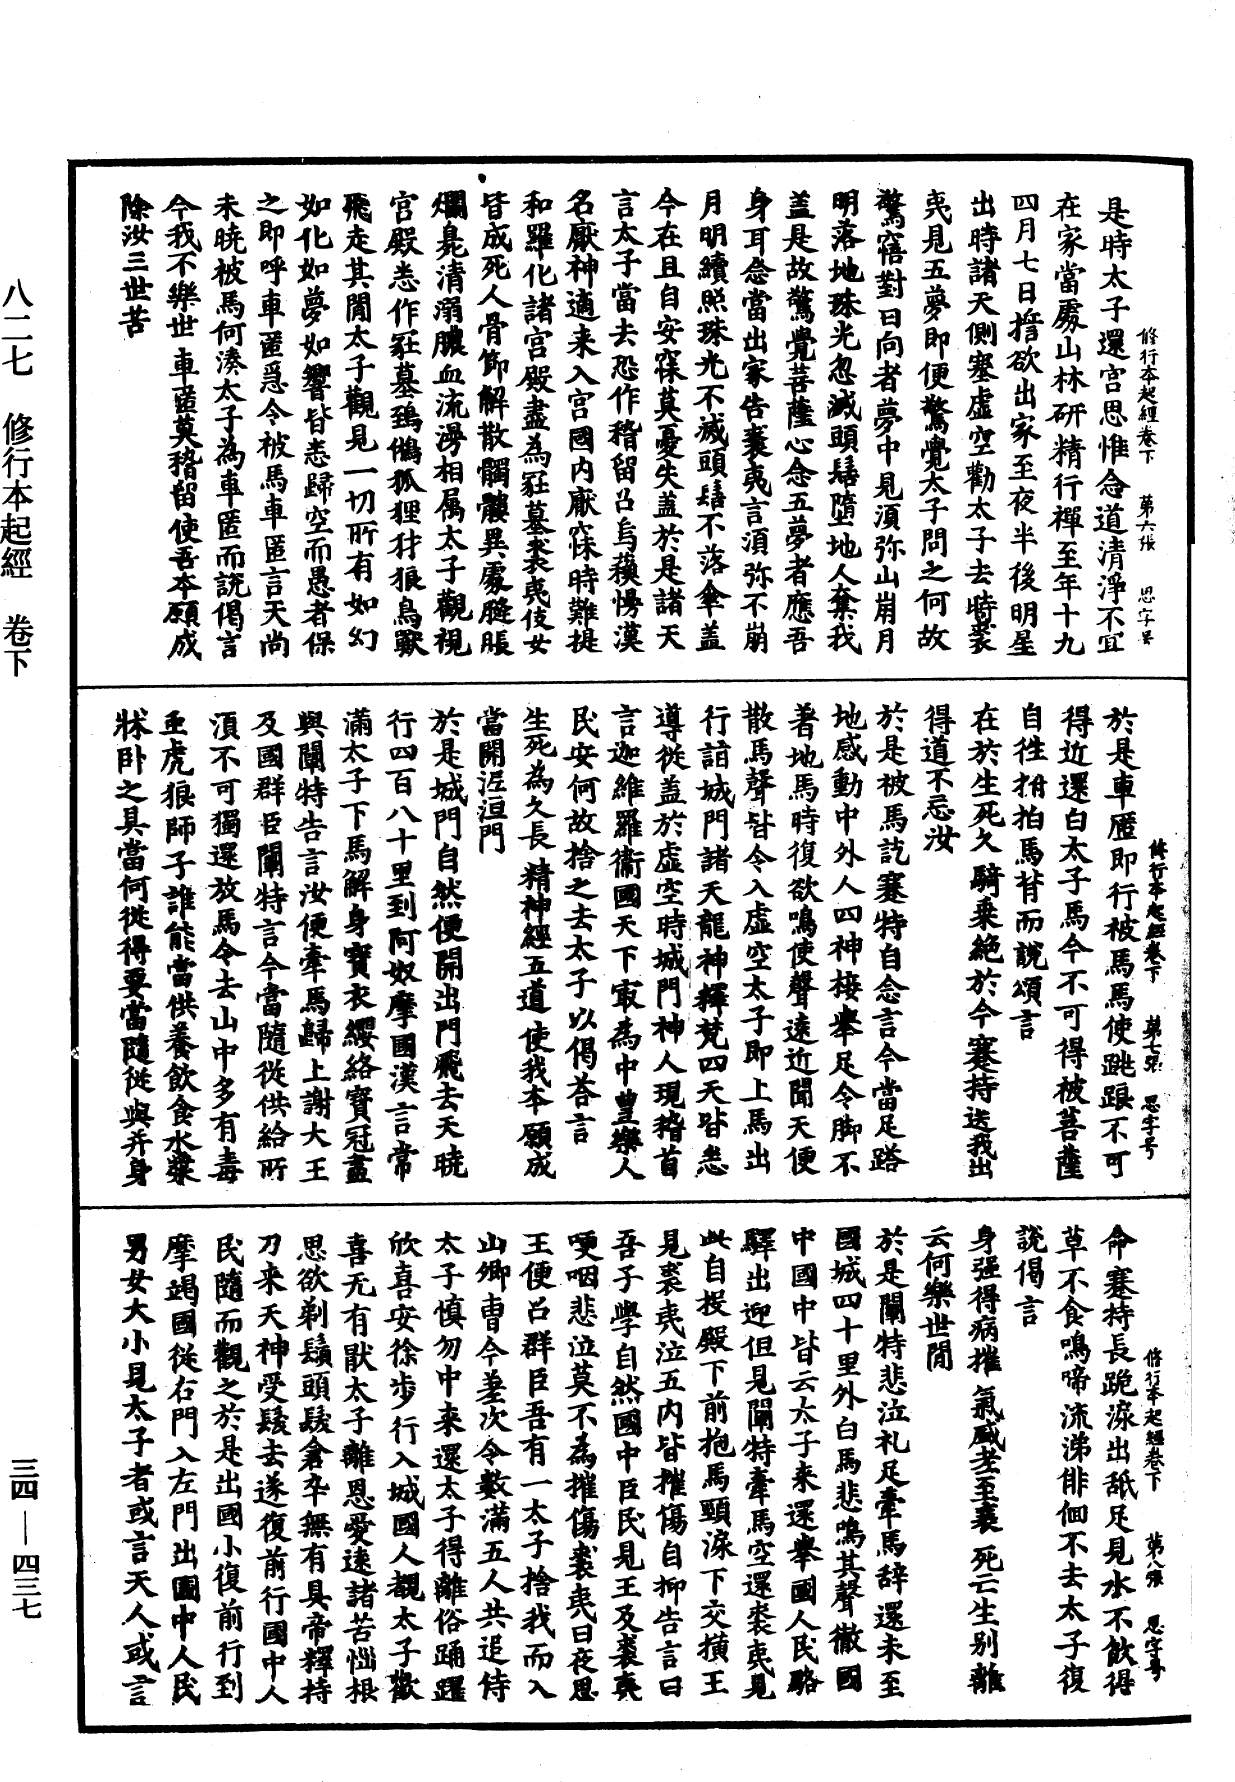 修行本起經卷下　第六張　思字号
是時太子還宮思惟念道清淨不宜
在家當處山林研精行禪至年十九
四月七日誓欲出家至夜半後明星
出時諸天側塞虛空勸太子去時裘
夷見五夢即便驚覺太子問之何故
驚寤對曰向者夢中見須弥山崩月
明落地珠光忽滅頭髻墮地人奪我
盖是故驚覺菩薩心念五夢者應吾
身耳念當出家告裘夷言須弥不崩
月明續照珠光不滅頭髻不落傘盖
今在且自安寐莫憂失盖於是諸天
言太子當去恐作稽留召烏蘓慢漢
名厭神適来入宮國内厭寐時難提
和羅化諸宮殿盡為冢墓裘夷伎女
皆成死人骨節解散髑髏異處膖脹
爛臰清溺膿血流澇相属太子觀視
宮殿悉作冢墓鵄鵂狐狸豺狼鳥獸
飛走其閒太子觀見一切所有如幻
如化如夢如響皆悉歸空而愚者保
之即呼車匿急令被馬車匿言天尚
未曉被馬何湊太子為車匿而說偈言
今我不樂世　車匿莫稽留使吾本願成
除汝三世苦
修行本起經卷下　第七張　思字号
於是車匿即行被馬馬使跳踉不可
得近還白太子馬今不可得被菩薩
自往拊拍馬背而說頌言
在於生死久　騎乗絶於今　蹇特送我出
得道不忘汝
於是被馬訖蹇特自念言今當足踏
地感動中外人四神接舉足令脚不
著地馬時復欲鳴使聲遠近聞天便
散馬聲皆令入虛空太子即上馬出
行詣城門諸天龍神釋梵四天皆悉
導從盖於虛空時城門神人現稽首
言迦維羅衛國天下㝡為中豊樂人
民安何故捨之去太子以偈荅言
生死為久長　精神經五道　使我本願成
當開泥洹門
於是城門自然便開出門飛去天曉
行四百八十里到阿奴摩國漢言常
滿太子下馬解身寳衣纓絡寳冠盡
與闡特告言汝便牽馬歸上謝大王
及國群臣闡特言今當隨從供給所
湏不可獨還放馬令去山中多有毒
䖝虎狼師子誰能當供養飲食水漿
牀卧之具當何從得要當隨從與并身
修行本起經卷下　第八張　思字号
命蹇特長跪淚出舐足見水不飲得
草不食鳴啼流涕俳佪不去太子復
說偈言
身强得病摧　氣盛老至衰　死亡生别離
云何樂世閒
於是闡特悲泣礼足牽馬辞還未至
國城四十里外白馬悲鳴其聲徹國
中國中皆云太子来還舉國人民駱
驛出迎但見闡特牽馬空還裘夷見
此自投殿下前抱馬頸淚下交横王
見裘夷泣五内皆摧傷自抑告言曰
吾子學自然國中臣民見王及裘夷
哽咽悲泣莫不為摧傷裘夷日夜思
王便召群臣吾有一太子捨我而入
山卿曺今差次令數滿五人共追侍
太子慎勿中来還太子得離俗踊躍
欣喜安徐步行入城國人覩太子歡
喜无有猒太子離恩愛遠諸苦惱根
思欲剃鬚頭髮倉卒無有具帝釋持
刀来天神受髮去遂復前行國中人
民隨而觀之於是出國小復前行到
摩竭國從右門入左門出國中人民
男女大小見太子者或言天人或言
八二七　修行本起經　卷下
三四—四三七